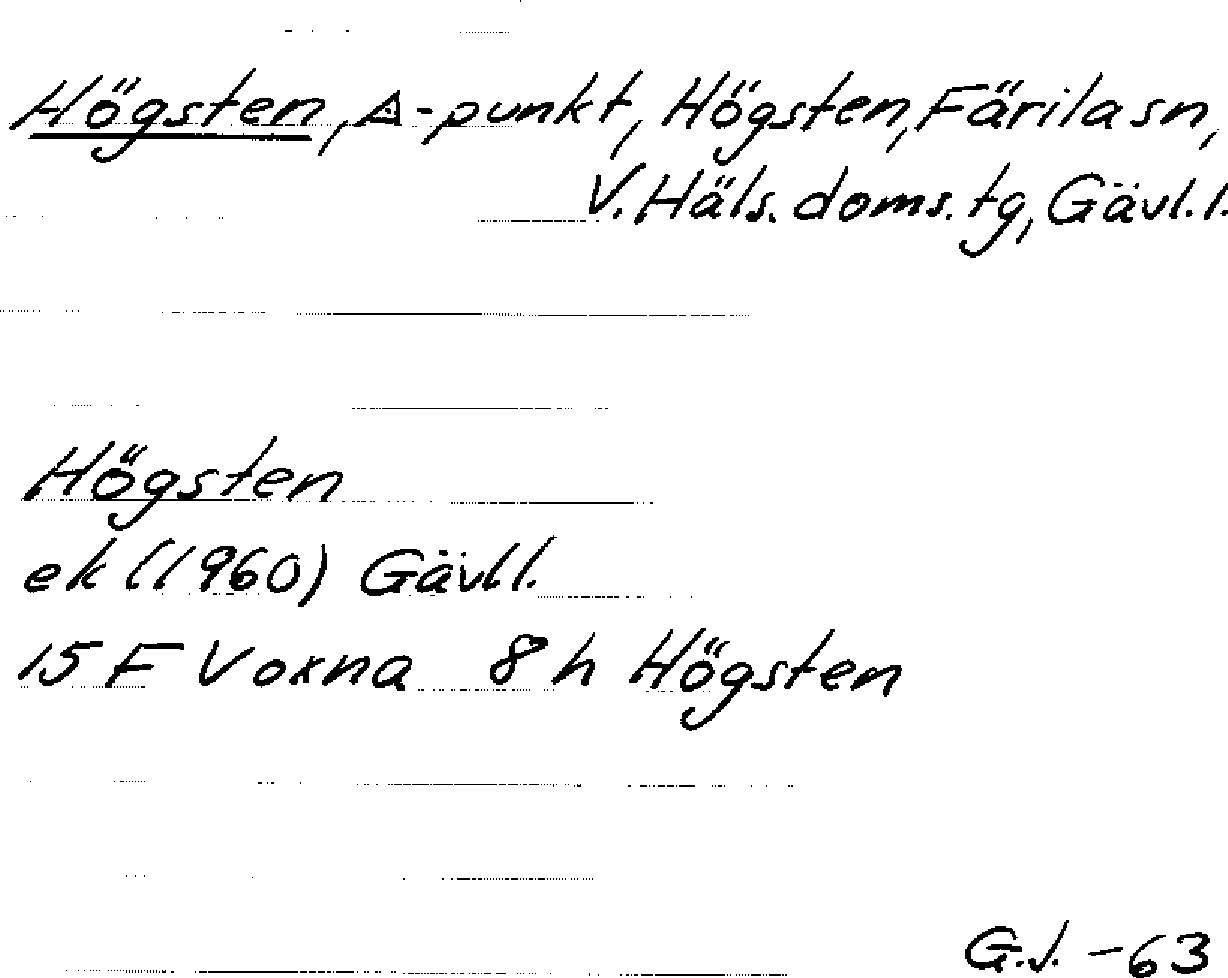 Högsten, △-punkt, Högsten, Färila sn,
V. Häls. doms. tg, Gävl. l.
Högsten
ek (1960) Gävl. l.
15 F Voxna 8 h Högsten
G.J. -63